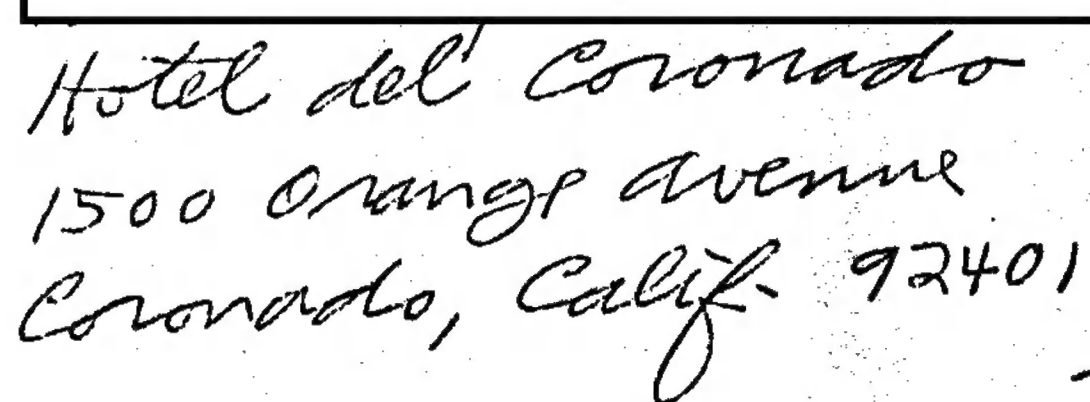 Hotel del Coronado
1500 Orange Avenue
Coronado, Calif. 92401